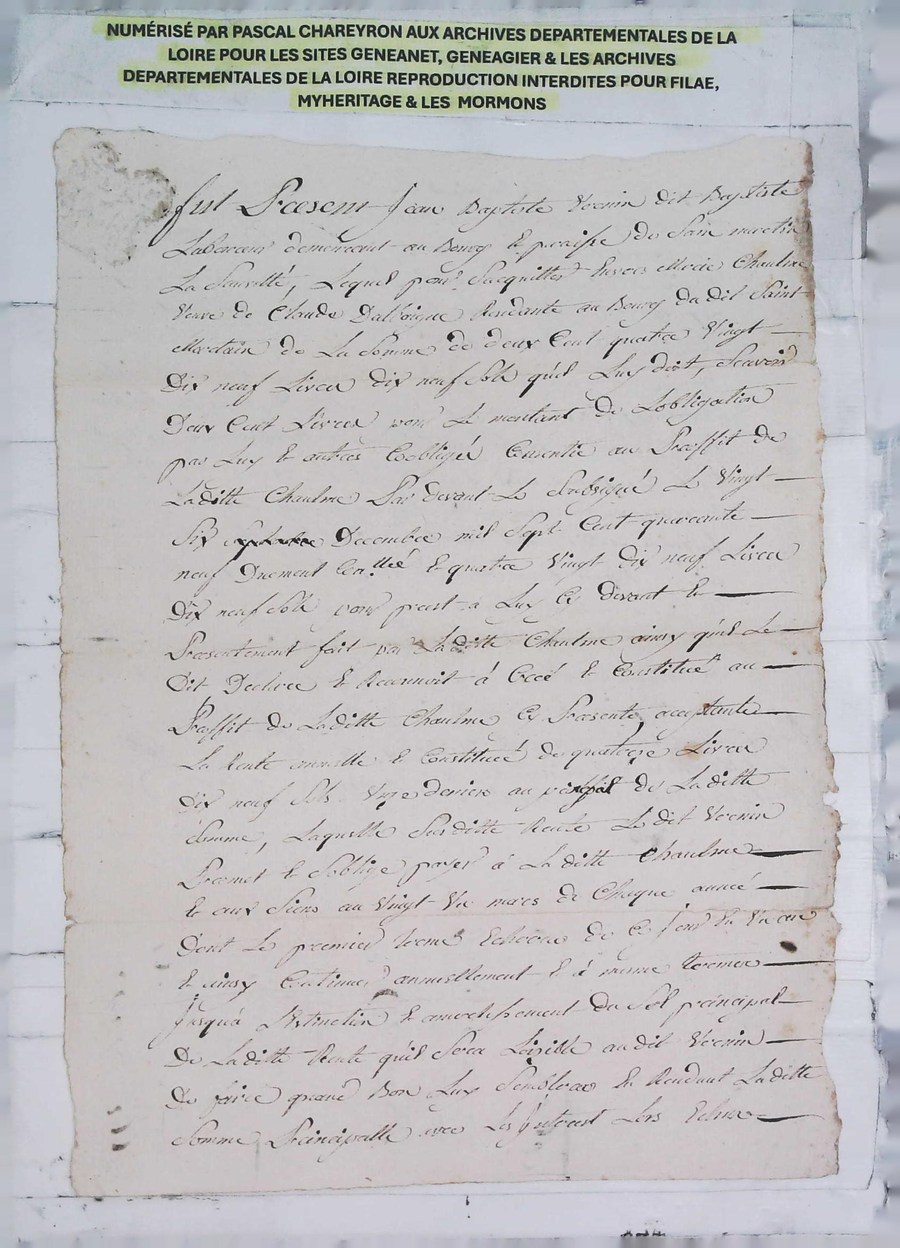 NUMÉRISÉ PAR PASCAL CHAREYRON AUX ARCHIVES DEPARTEMENTALES DE LA
LOIRE POUR LES SITES GENEANET, GENEAGIER & LES ARCHIVES
DEPARTEMENTALES DE LA LOIRE REPRODUCTION INTERDITES POUR FILAE,
MYHERITAGE & LES MORMONS
fut Present Jean Baptiste Vernin dit Baptiste
Laboureur demeurant au Bourg & paroisse de Sain martin
La Sauvetté, Lequel pour Sacquitter Envers Marie Chaulme
Veuve de Claude Rendante au Bourg du dit Saint
Martain de La Somme de deux Cent quatre Vingt
Dix neuf Livres dix neuf Sols qu'il Luy doit, Scavoir
Deux Cent Livres pour Le montant de Lobligation
par Luy & autres Coobligés Consentie au Proffit de
Laditte Chaulme Par devant Le Soubsigné Le Vingt
Six Decembre mil Sept Cent quarante
neuf Duement & quatre Vingt dix neuf Livres
Dix neuf Sols pour prest à Luy Cy devant &
Presentement fait par Laditte Chaulme ainsy qu'il Le
Dit Declare & Reconnoit à Créé & Constitué au
Proffit de Laditte Chaulme Cy Presente, acceptante
La Rente annuelle & Constituée de quatorze Livres
Dix neuf Sols au principal de Laditte
Somme, Laquelle Susditte Rente Ledit Vernin
Promet & Soblige payer à Laditte Chaulme
& aux Siens au Vingt mars de Chaque année
Dont Le premier terme Echerra de Ce Jour En Un an
& ainsy Continuer annuellement & à meme termes
Jusqua Extinction & amortissement du Sol principal
De Laditte Rente qu'il Sera Loisible audit Vernin
De faire quand Bon Luy Semblera En Rendant Laditte
Somme Principalle avec Les Interest Lors Echus